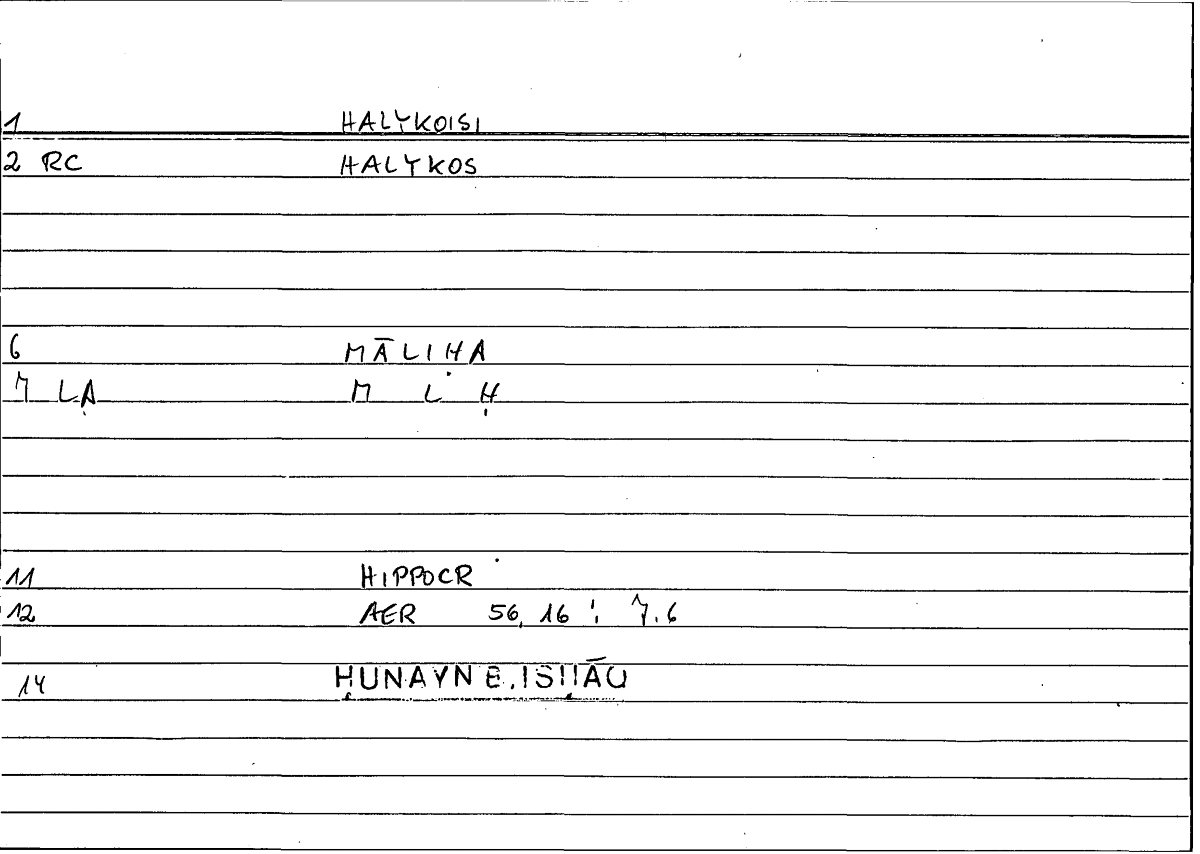 1 HALYKOISI
2 RC HALYKOS
6 MĀLIḤA
7 LẠ M L Ḥ
11 HIPPOCR
12 AER 56, 16 ; 7.6
14 ḤUNAYN B. ISḤĀQ